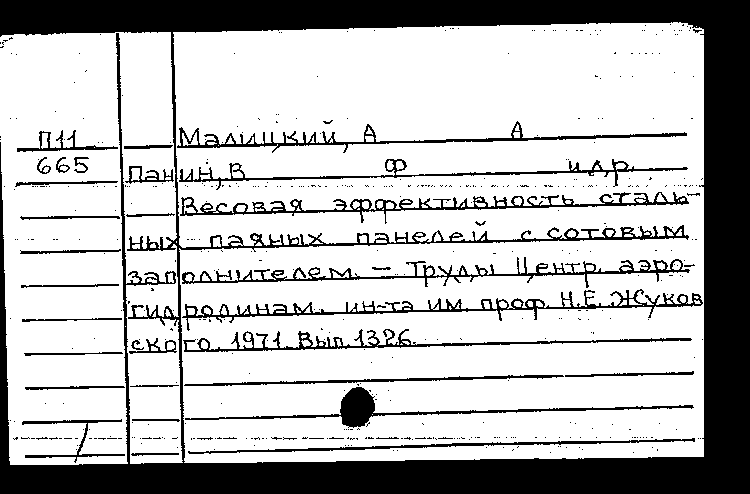 П11 Малицкий, А А
665 Панин, В Ф и др.
Весовая эффективность сталь-
ных паяных панелей с сотовым
заполнителем. – Труды Центр. аэро-
гидродинам. ин-та им. проф. Н.Е. Жуков
ского. 1971. Вып. 1326.